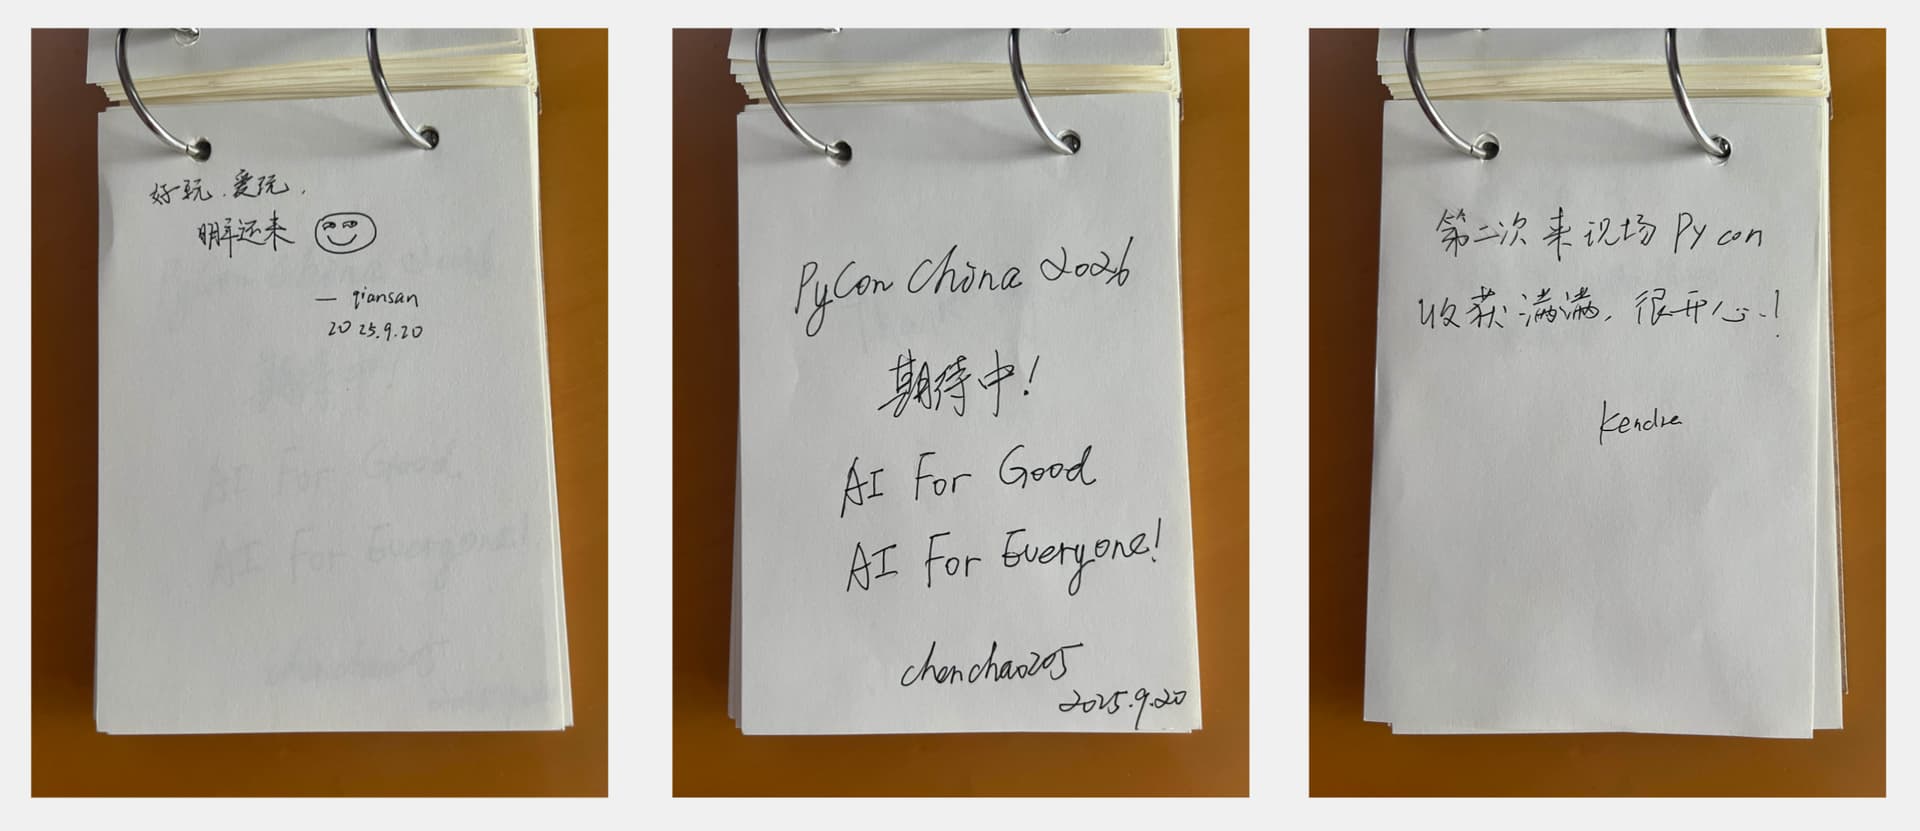 好玩、爱玩,
明年还来
— qiansan
2025.9.20
PyCon China 2026
期待中!
AI For Good
AI For Everyone!
chenchao205
2025.9.20
第二次来现场 Py con
收获满满, 很开心!
Kendra